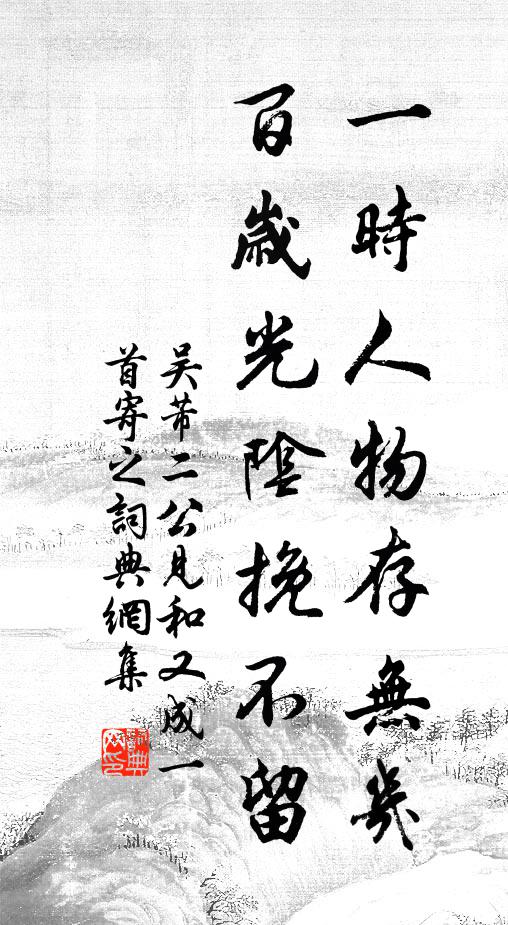 一時人物存無幾
百歲光陰挽不留
吳芾二公見和又成一
首寄之詞典網集